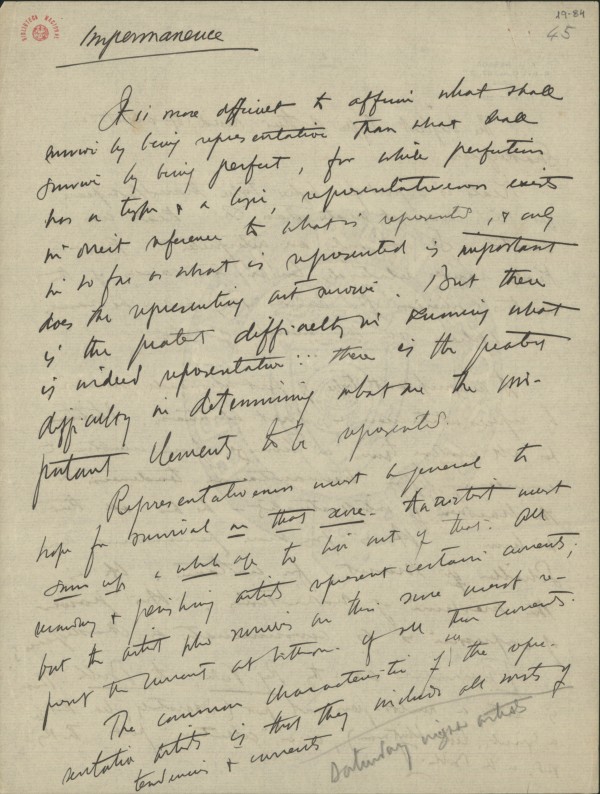 19-84
45
BIBLIOTECA NACIONAL
Impermanence
It is more difficult to affirm what shall
survive by being representative than what shall
survive by being perfect, for while perfection
has a type & a logic, representativeness exists
in direct reference to what is represented, & only
in so far as what is represented is important
does the representing art survive. But there
is the greatest difficulty in knowing what
is indeed representative: there is the greatest
difficulty in determining what are the im-
portant elements to be represented.
Representativeness must be general to
hope for survival on that score. An artist must
sum up a whole age to live out of that. All
secondary & perishing artists represent certain currents;
but the artist who survives on this score must re-
present the current at bottom of all these currents.
The common characteristic of all the repre-
sentative artists is that they include all sorts of
tendencies & currents
Saturday night artists